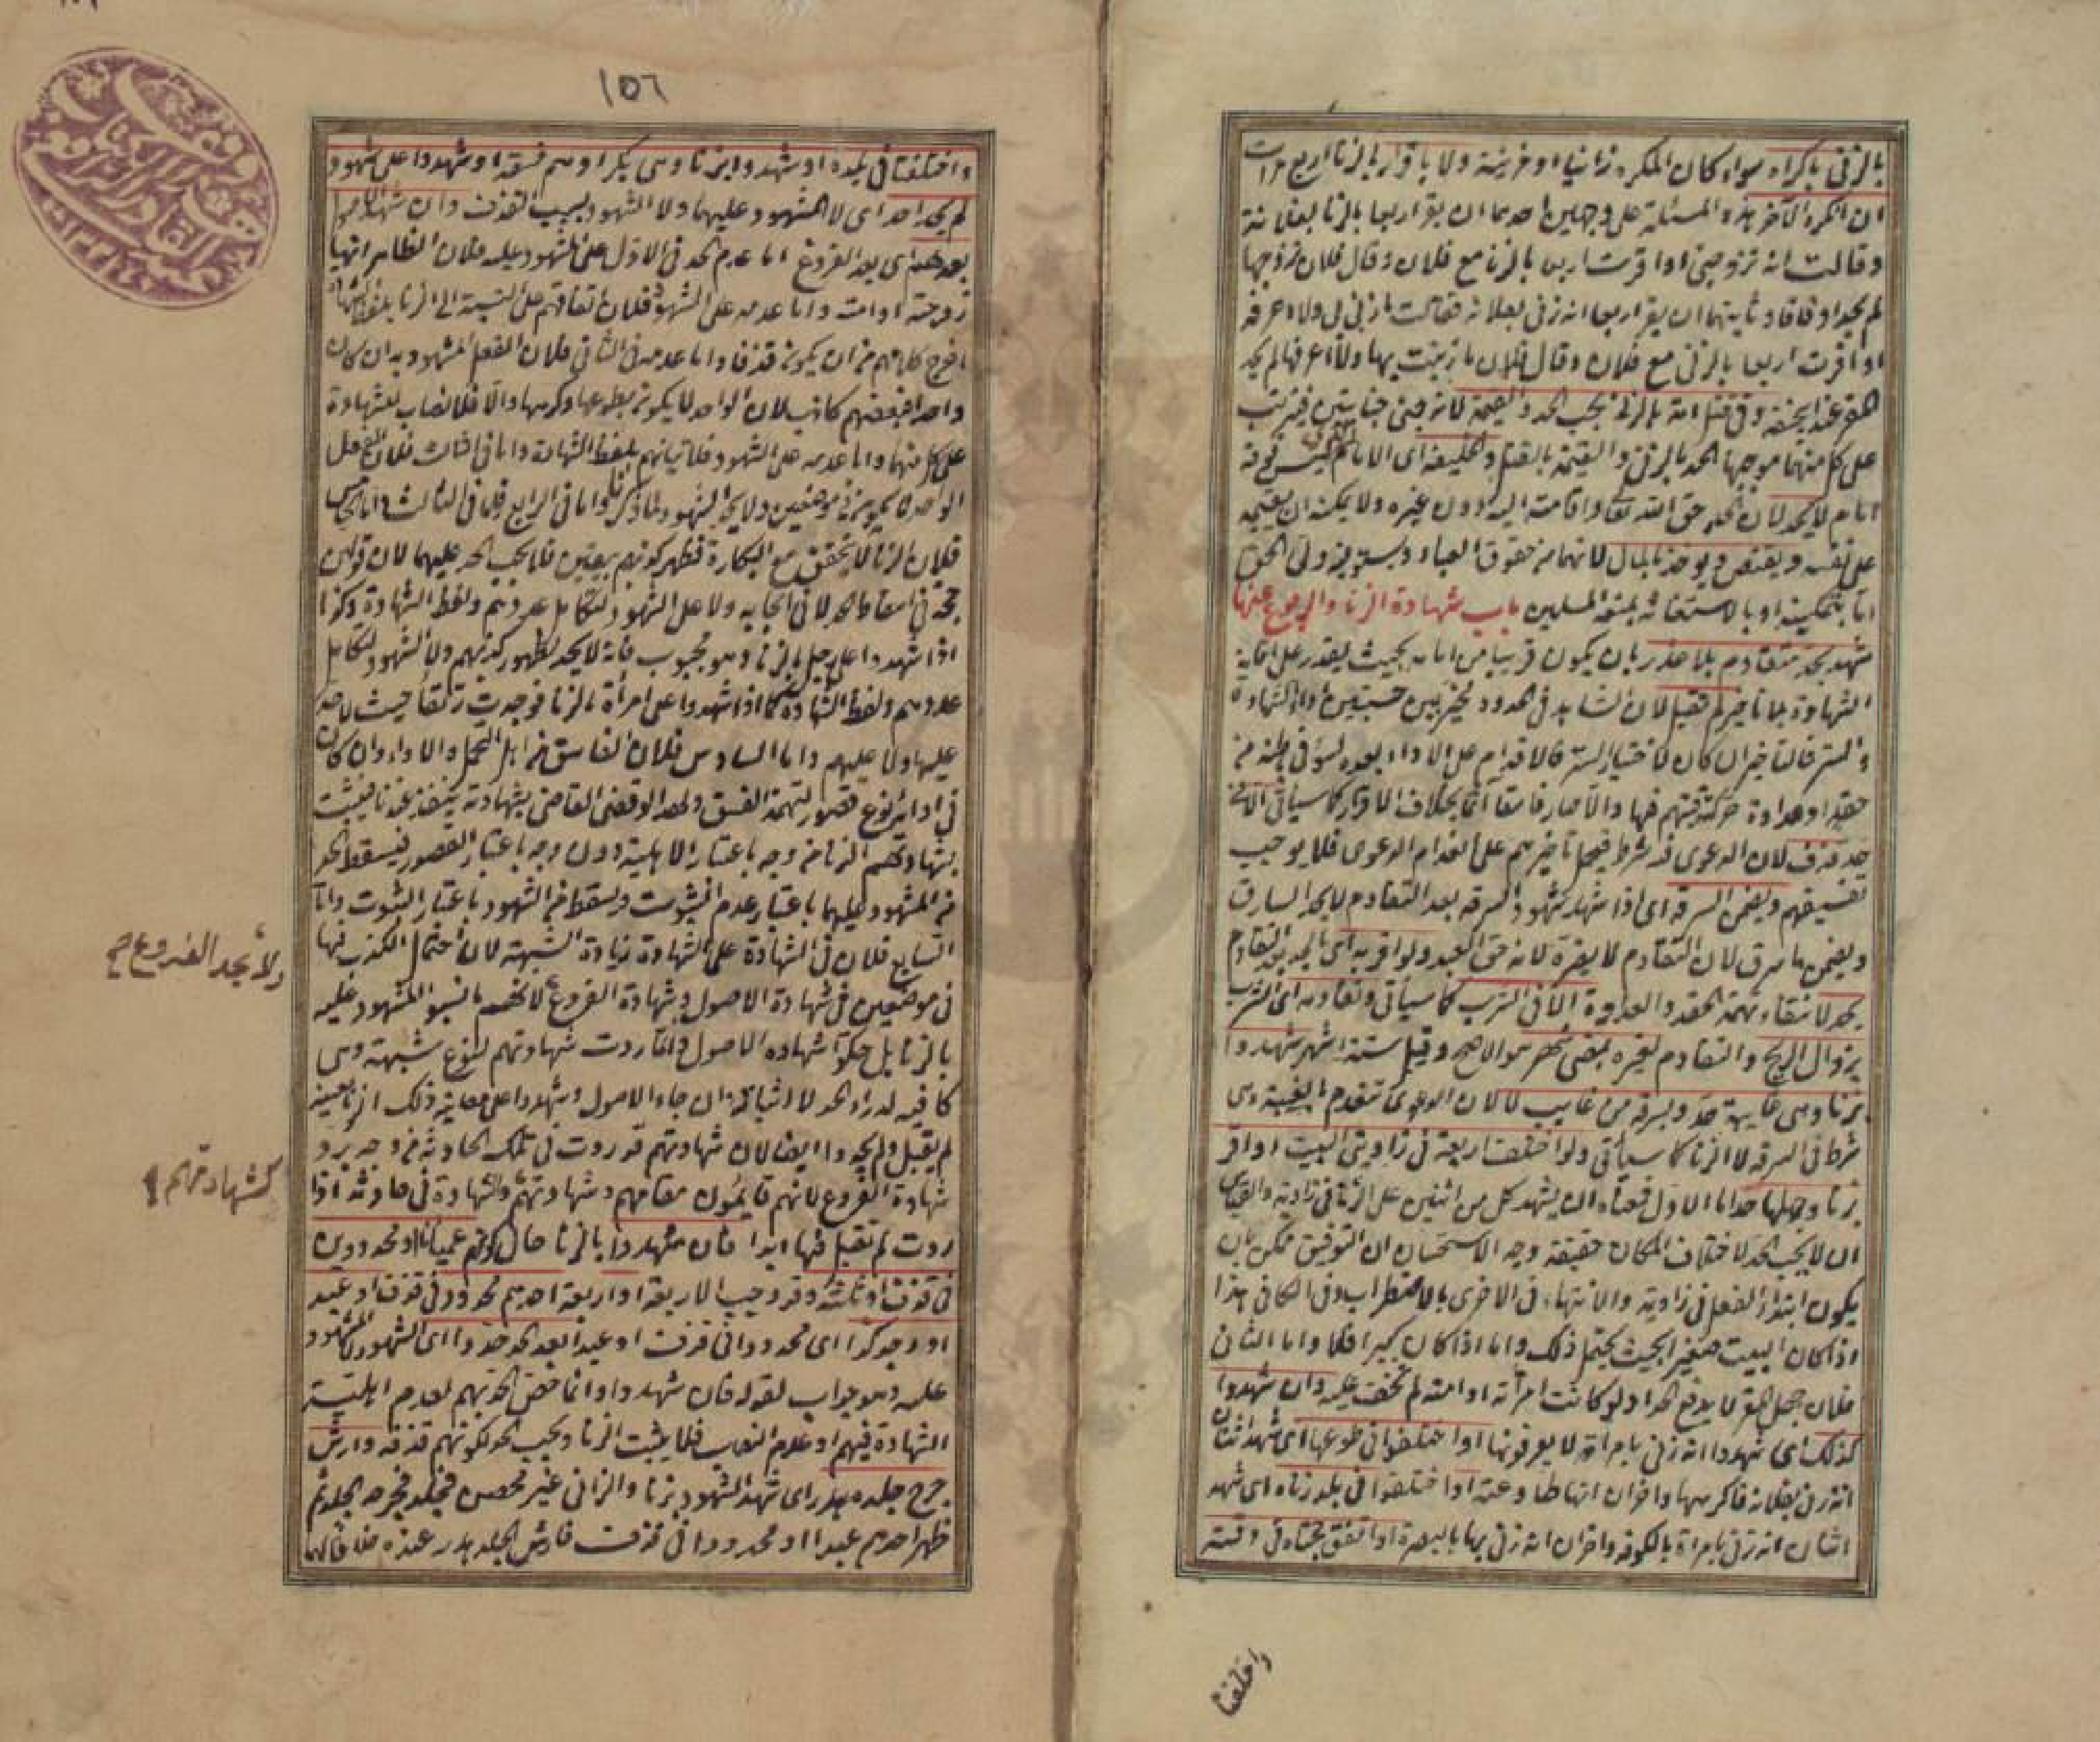 بالزنى باكراه سواء كان المكره زانيا او مزنية ولا باقرار بالزنا اربع مرات
ان انكره الآخر هذه المسئلة على وجهين احدهما ان يقر اربعا بالزنا بفلانة
وقالت انه تزوجني او اقرت اربعا بالزنا مع فلان وقال فلان تزوجها
لم يحد اوفاقا وثانيهما ان يقر اربعا انه زنى بفلانة فقالت ما زنى بي ولا اعرفه
او اقرت اربعا بالزنى مع فلان وقال فلان ما زنيت بها ولا اعرفها لم يحد
المقر عند ابي حنيفة وفي قتل امة بالزنى يجب الحد والقيمة لانه جنى جنايتين فيترتب
على كل منهما موجبها الحد بالزنى والقيمة بالقتل والخليفة اى الامام الذي ليس فوقه
امام لا يحد لان الحد حق الله تعالى واقامته اليه دون غيره ولا يمكنه ان يقيمه
على نفسه ويقتص ويؤخذ بالمال لانهما من حقوق العباد ويستوفيه ولي الحق
اما بتمكينه او بالاستعانة بمنعة المسلمين باب شهادة الزنا والرجوع عنها
شهد بحد متقادم بلا عذر بان يكون قريبا من امامه بحيث يقدر على اقامة
الشهادة بلا تاخير لم تقبل لان الشاهد في الحدود مخير بين حسبتين اداء الشهادة
والستر فالتاخير ان كان لاختيار الستر فالاقدام على الاداء بعده لسوء في ظنه من
حقد او عداوة حركته فيتهم فيها والا صار فاسقا آثما بخلاف الاقرار كما سياتي الا في
حد قذف لان الدعوى فيه شرط فيحمل تاخيرهم على انعدام الدعوى فلا يوجب
تفسيقهم ويضمن السرقة اى اذا شهد شهود السرقة بعد التقادم لا يحد السارق
ويضمن ما سرق لان التقادم لا يضره لانه حق العبد ولو اقر به اى بالحد بعد التقادم
يحد لانتفاء تهمة الحقد والعداوة الا في الشرب كما سياتي وتقادمه اى الشرب
بزوال الريح والتقادم لغيره بمضي شهر هو الاصح وقيل ستة اشهر شهدوا
بزنا وهي غايبة حد وبسرقة من غايب لا لان الدعوى تنعدم بالغيبة وهي
شرط في السرقة لا الزنا كما سياتي ولو اختلف اربعة في زاويتي البيت او اقر
بزنا وجهلها حد اما الاول فمعناه ان يشهد كل من اثنين على الزنا في زاوية والقياس
ان لا يجب الحد لاختلاف المكان حقيقة وجه الاستحسان ان التوفيق ممكن بان
يكون ابتداء الفعل في زاوية والانتهاء في الاخرى بالاضطراب وفي الكافي هذا
اذا كان البيت صغيرا بحيث يحتمل ذلك واما اذا كان كبيرا فلا واما الثاني
فلان جهل المقر لا يدفع الحد اذ لو كانت امرأته او امته لم تخف عليه وان شهدوا
كذلك اى شهدوا انه زنى بامرأة لا يعرفونها او اختلفوا في طوعها اى شهد اثنان
انه زنى بفلانة فاكرهها واخران انها طاوعته او اختلفوا في بلد زناه اى شهد
اثنان انه زنى بامرأة بالكوفة واخران انه زنى بها بالبصرة او اتفق حجتاه في وقته
واختلفتا
١٥٦
واختلفتا في بلده او شهدوا بزنا وهي بكر او هم فسقة او شهدوا على شهود
لم يحد احد اى لا المشهود عليهما ولا الشهود بسبب القذف وان شهد الاصول
بعدهم اى بعد الفروع اما عدم الحد في الاول على المشهود عليه فلان الظاهر انها
زوجته او امته واما عدمه على الشهود فلان اتفاقهم على النسبة الى الزنا بلفظ الشهادة
اخرج كلامهم من ان يكون قذفا واما عدمه في الثاني فلان الفعل المشهود به ان كان
واحدا فبعضهم كاذب لان الواحد لا يكون بطوعها وكرهها والا فلا نصاب للشهادة
على كل منهما واما عدمه على الشهود فلاتيانهم بلفظ الشهادة واما في الثالث فلان الفعل
الواحد لا يكون في موضعين ولا يحد الشهود لما ذكرنا واما في الرابع فلما في الثالث واما الخامس
فلان الزنا لا يتحقق مع البكارة فظهر كذبهم بيقين فلا يجب الحد عليهما لان قولهن
حجة في اسقاط الحد لا في ايجابه ولا على الشهود لتكامل عددهم ولفظ الشهادة وكذا
اذا شهدوا على رجل بالزنا وهو مجبوب فانه لا يحد لظهور كذبهم ولا الشهود لتكامل
عددهم ولفظ الشهادة كما اذا شهدوا على امرأة بالزنا فوجدت رتقا حيث لا حد
عليها ولا عليهم واما السادس فلان الفاسق من اهل التحمل والاداء وان كان
في ادائه نوع قصور لتهمة الفسق ولهذا لو قضى القاضي بشهادته ينفذ عندنا فيثبت
بشهادتهم الزنا من وجه باعتبار الاهلية دون وجه باعتبار القصور فيسقط الحد
من المشهود عليهما باعتبار عدم الثبوت ويسقط من الشهود باعتبار الثبوت واما
السابع فلان في الشهادة على الشهادة زيادة الشبهة لان احتمال الكذب فيها
في موضعين في شهادة الاصول وشهادة الفروع لانهم ما نسبوا المشهود عليه
ولا يحد الفروع صح
بالزنا بل حكوا شهادة الاصول وانما ردت شهادتهم لنوع شبهة وهي
كافية لدرء الحد لا اثباته وان جاء الاصول وشهدوا على معاينة ذلك الزنا بعينه
لم يقبل ولم يحدوا ايضا لان شهادتهم قد ردت في تلك الحادثة من وجه برد
شهادة الفروع لانهم قايمون مقامهم وشهادتهم والشهادة في حادثة اذا
كشهادتهم
ردت لم تقبل فيها ابدا فان شهدوا بالزنا حال كونهم عميانا او محدودين
في قذف او ثلثة وقد وجب الاربعة او اربعة احدهم محدود في قذف او عبد
او وجد كذا اى محدودا في قذف او عبدا بعد الحد حدوا اى الشهود لا المشهود
عليه وهو جواب لقوله فان شهدوا وانما خص الحد بهم لعدم اهلية
الشهادة فيهم او عدم النصاب فلا يثبت الزنا ويجب الحد لكونهم قذفة وارش
جرح جلده هدر اى شهد الشهود بزنا والزاني غير محصن فجلد فجرحه الجلد ثم
ظهر احدهم عبدا او محدودا في قذف فارش الجلد هدر عنده خلافا لهما